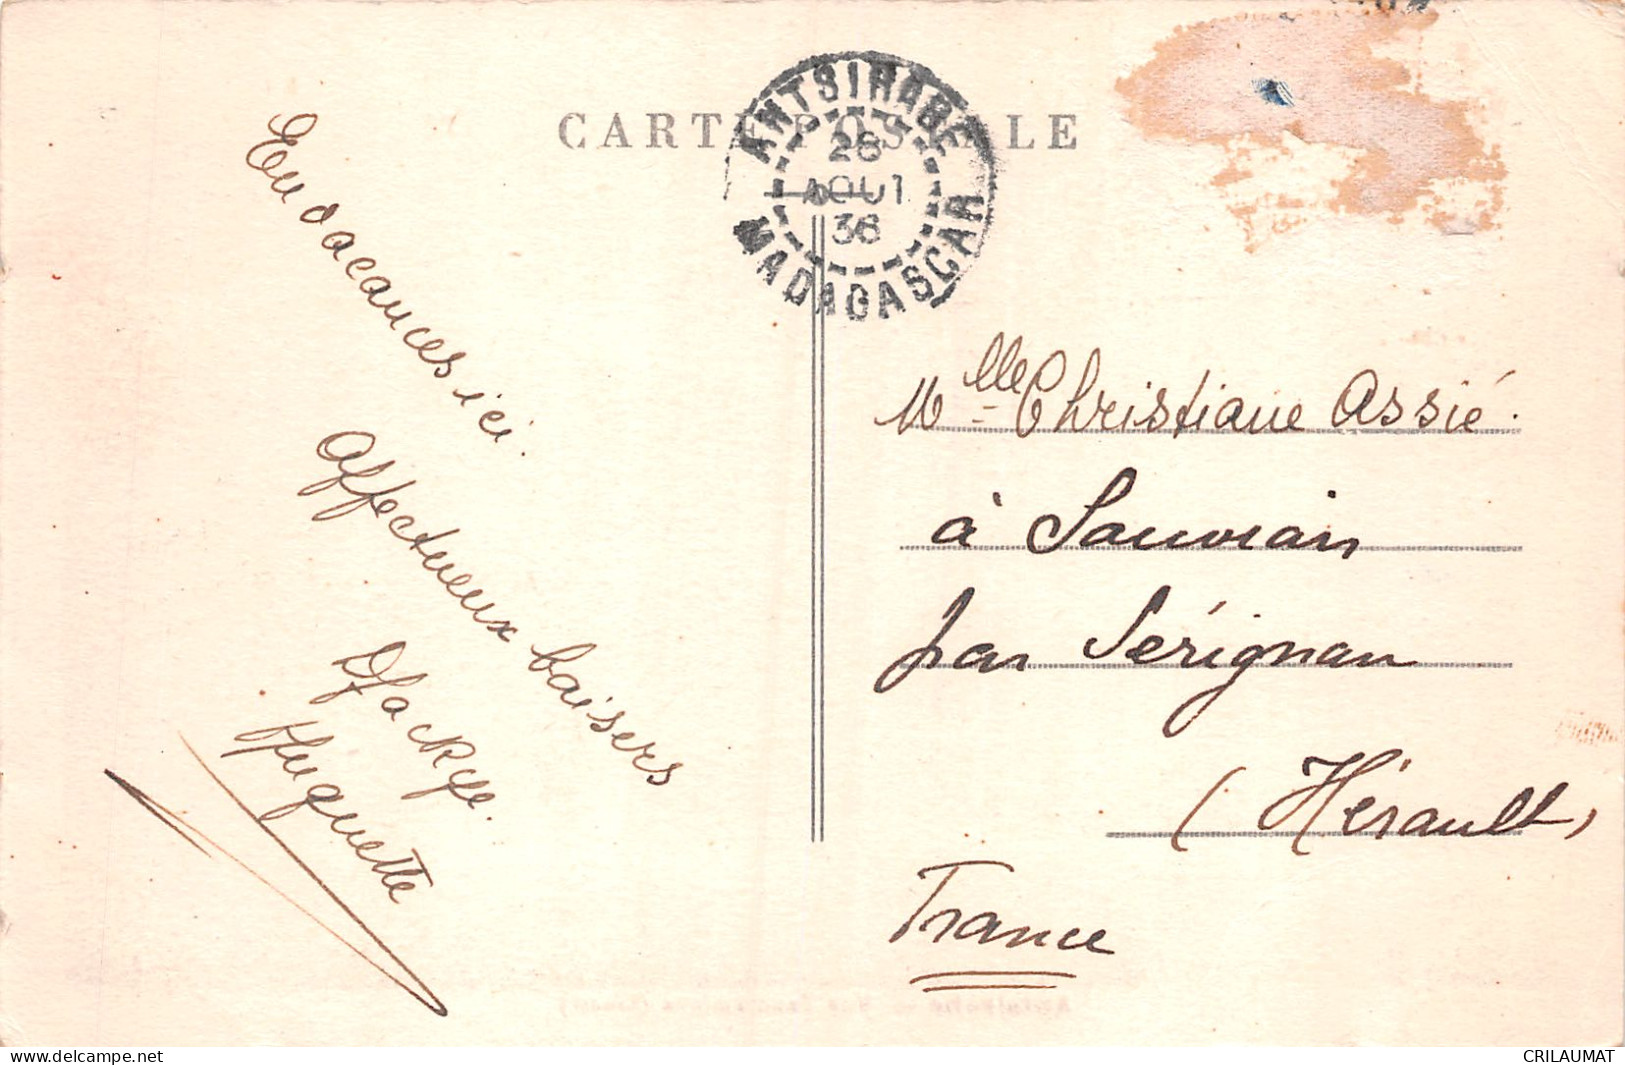 CARTE POSTALE
ANTSIRABE
28
AOUT
36
MADAGASCAR
En vacances ici.
Affectueux baisers
Jackye.
Huguette
Mlle Christiane Assié.
à Sauvian
par Sérignan
(Hérault)
France
delcampe.net
CRILAUMAT